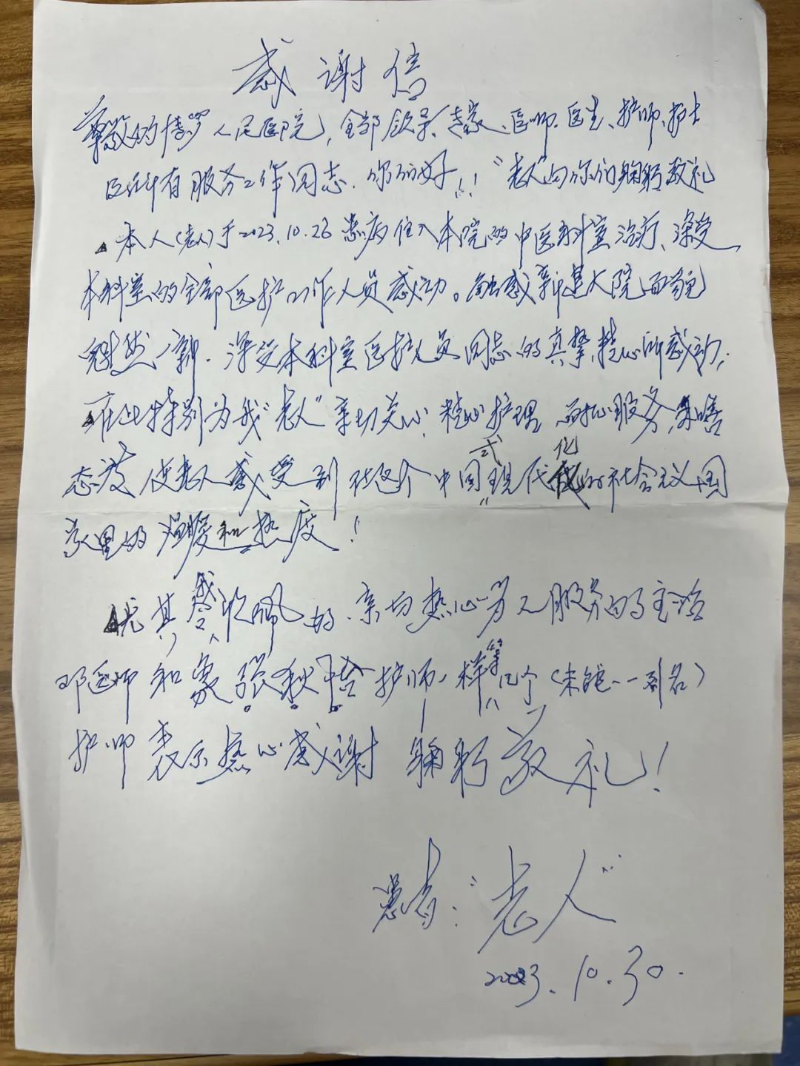 感谢信
尊敬的博罗人民医院,全部领导、专家、医师、医生、护师、护士
及所有服务工作同志.你们好!!"老人"向你们鞠躬敬礼
本人(老人)于2023.10.26患病住入本院的中医科室治疗、深受
本科室的全部医护工作人员感动。触感新建大院面貌
焕然一新.深受本科室医护人员同志的真挚精心所感动;
在此特别为我"老人"亲切关心,精心护理 耐心服务,
态度 使老人感受到 在这个中国式现代化的社会主义国
家里的温暖和热度!
尤其感 佩的.亲切热心 服务的主治
邓医师和象张秋 护师一样等几个(未能一一列名)
护师表示热心感谢 鞠躬敬礼!
患者:"老人"
2023.10.30.